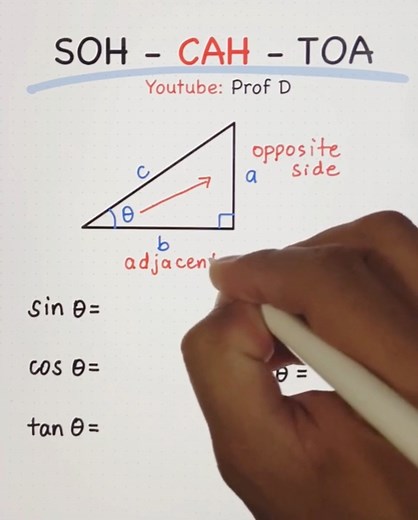 SOH - CAH - TOA
Youtube: Prof D
opposite
side
c
a
θ
b
sin θ=
cos θ=
θ =
tan θ=